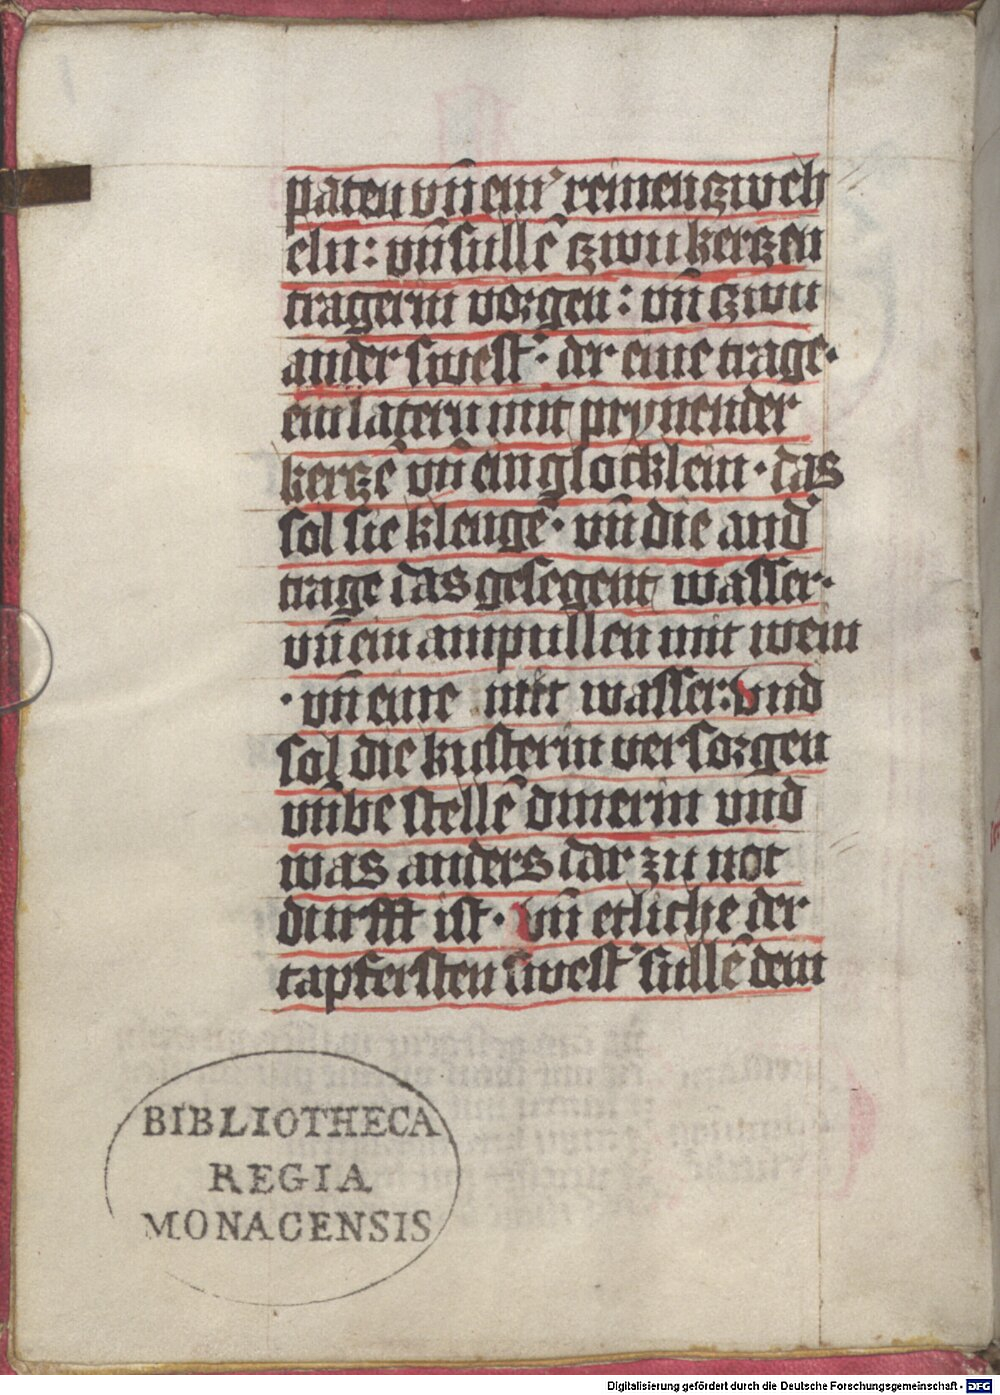 paten vn̄ ein᷑ reinen zwch
eln: vn̄ sullē zwu kerczen
tragerin vorgen: vn̄ zwu
ander swest᷑: der eine trage·
ein latern mit prynender
kerzē vn̄ ein glocklein· das
sol sie klenge᷑· vn̄ die and᷑
trage das gesegent wasser·
vn̄ ein ampullen mit wein
· vn̄ eine mit wasser: vnd
sol die kusterin versorgen
vn̄ bestellē dinerin vnd
was anders dar zu not
durfft ist· vn̄ etliche der
tapfersten swest᷑ sullē dem
BIBLIOTHECA
REGIA
MONACENSIS
Digitalisierung gefördert durch die Deutsche Forschungsgemeinschaft - DFG